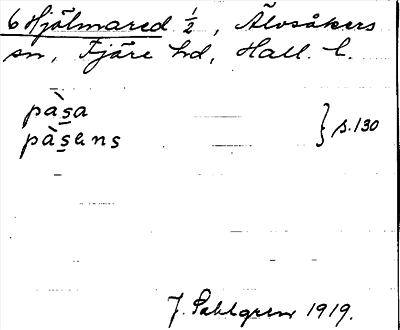 6 Hjälmared ½, Älvsåkers
sn, Fjäre hd, Hall. l.
pàs̲a
pàs̲ens } s. 130
J. Sahlgren 1919.